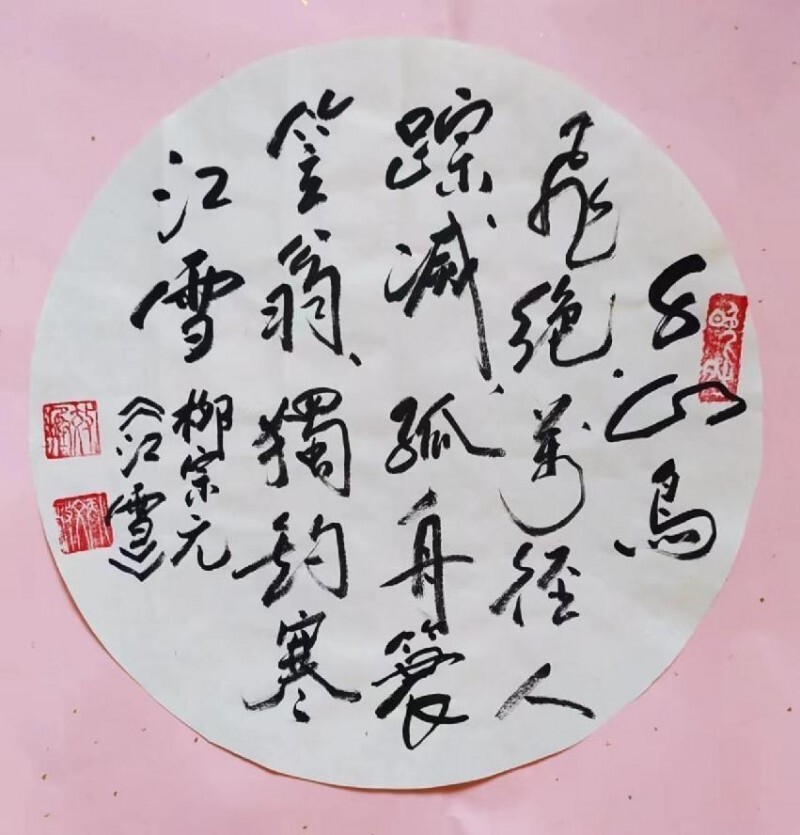 千山鸟
飛絕萬径人
踪滅孤舟簑
笠翁獨钓寒
江雪
柳宗元
《江雪》